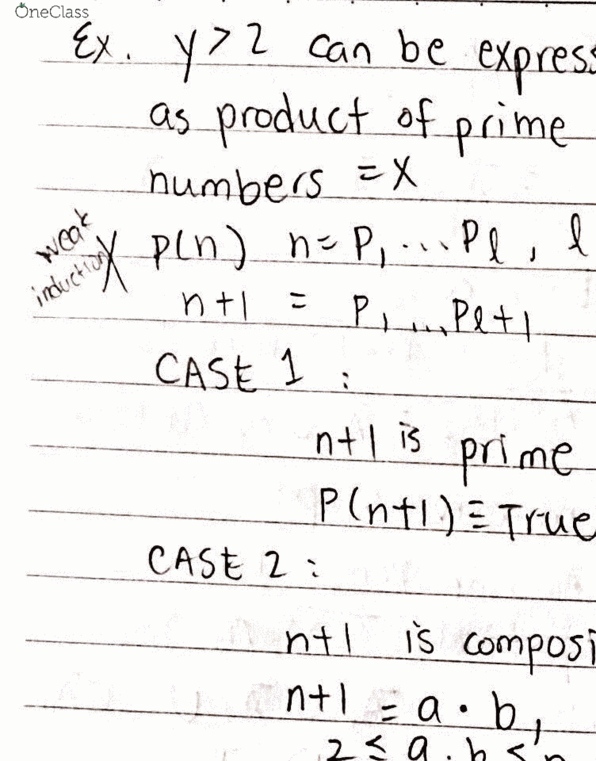 OneClass
Ex. y>2 can be express
as product of prime
numbers = x
weak
induction X P(n) n= P1 ... Pl, l
n+1 = P1 ... Pl+1
CASE 1 :
n+1 is prime
P(n+1) ≡ True
CASE 2 :
n+1 is composi
n+1 = a · b,
2 ≤ a, b ≤ n